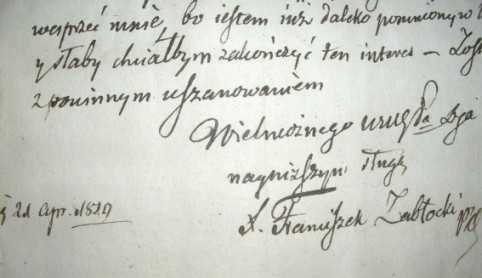 wesprzeć mnie, bo iestem iuż daleko posuniony w
y słaby chciałbym zakończyć ten interes – Zost
z powinnym uszanowaniem
Wielmożnego
nayniższym sługą
X. Franciszek Zabłocki
21 1829